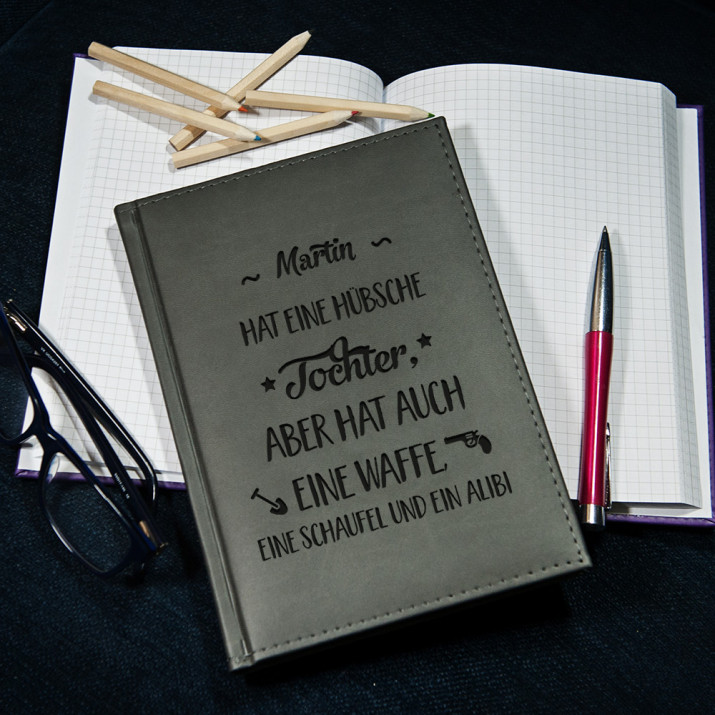 Martin
HAT EINE HÜBSCHE
Tochter,
ABER HAT AUCH
EINE WAFFE,
EINE SCHAUFEL UND EIN ALIBI